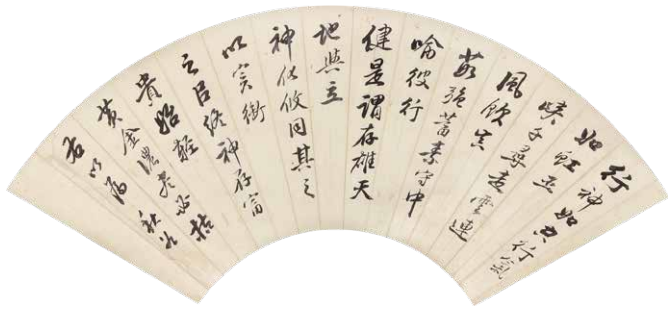 行神如空行氣
如虹巫
峽千尋走雲連
風飲真
茹強蓄素守中
喻彼行
健是謂存雄天
地與立
神化攸同其之
以實御
之以終神存富
貴始輕
黃金濃盡必枯